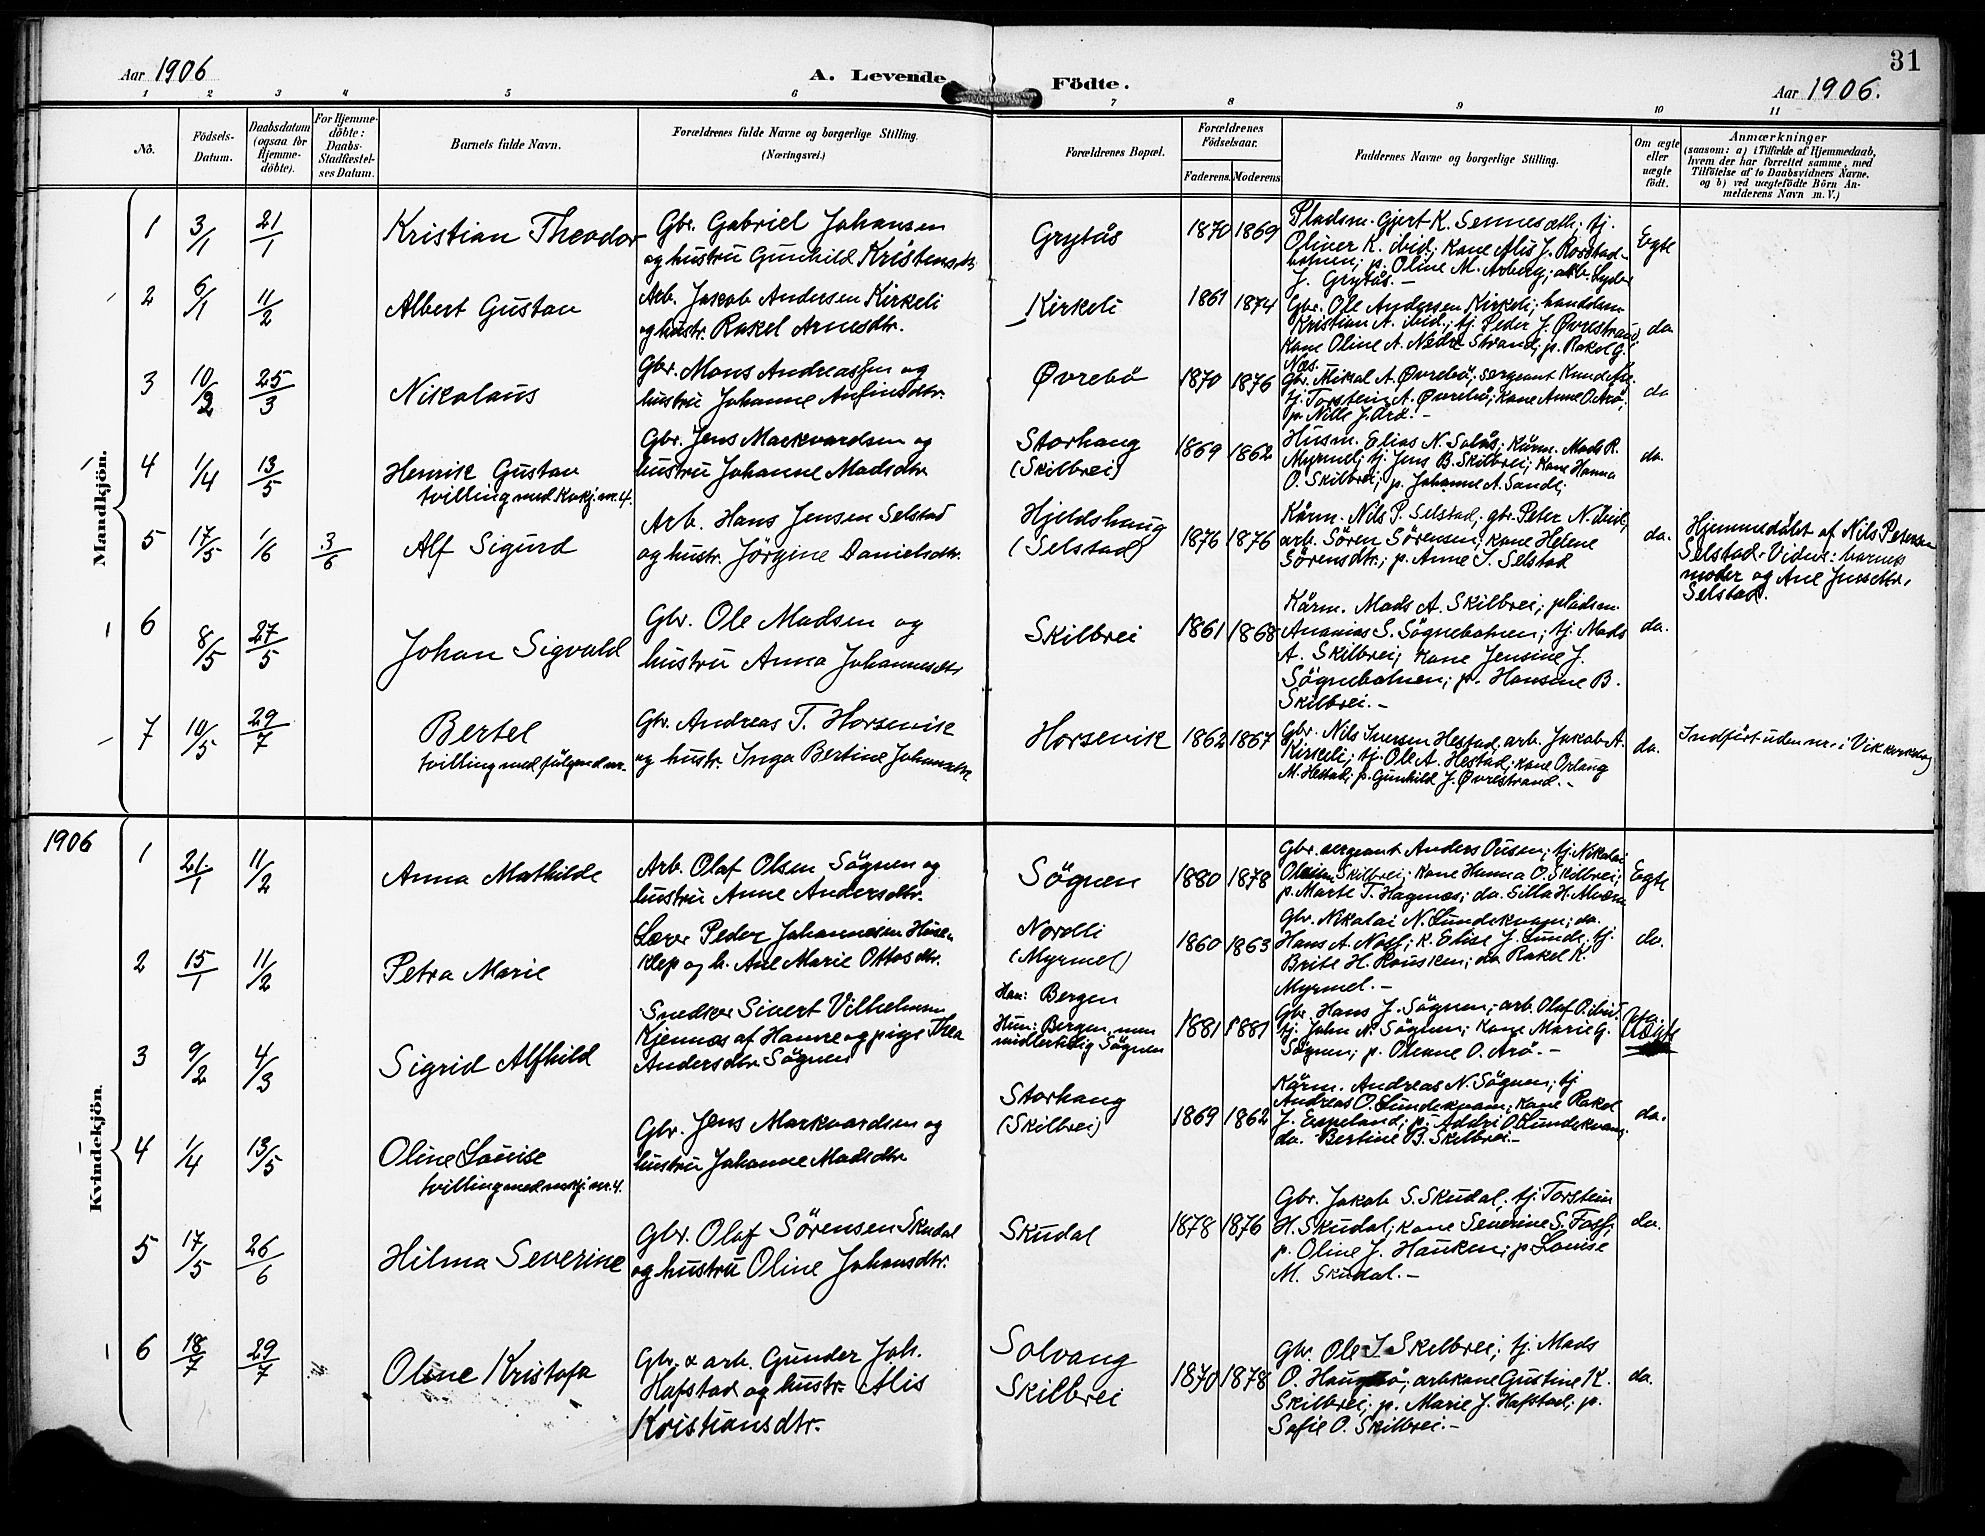 31
Aar 1906
A. Levende Födte.
Aar 1906.
1 2 3 4 5 6 7 8 9 10 11
No.
Födsels-
Datum.
Daabsdatum
(ogsaa for
Hjemme-
döbte).
For Hjemme-
döbte:
Daabs-
Stadfæstel-
ses Datum.
Barnets fulde Navn.
Forældrenes fulde Navne og borgerlige Stilling.
(Næringsvei.)
Forældrenes Bopæl.
Forældrenes
Födselsaar.
Faderens. Moderens.
Faddernes Navne og borgerlige Stilling.
Om ægte
eller
uægte
födt.
Anmærkninger
(saasom: a) i Tilfælde af Hjemmedaab,
hvem der har forrettet samme, med
Tilföielse af to Daabsvidners Navne.
og b) ved uægtefödte Börn An-
melderens Navn m. V.)
Mandkjön.
1 3/1 21/1
Kristian Theodor
Gbr. Gabriel Johansen
og hustru Gunhild Kristensdtr.
Grytås
1870 1869
Pladsm. Gjert K. Sennesæth; tj.
Oliver K. ibid; kone Alis J. Rorstad-
botnen; p. Oline M. Arberg; arb.
J. Grytås.-
Egte
2 6/1 11/2
Albert Gustav
Arb. Jakob Andersen Kirkeli
og hustr. Rakel Arnesdtr.
Kirkeli
1861 1874
Gbr. Ole Andersen Kirkeli; handelsm
Kristian A. ibid.; tj. Peder J. Øvrestrand;
kone Oline A. Nedre Strand; p. Rakel G.
Nos.
do.
3 10/2 25/3
Nikolaus
Gbr. Mons Andreassen og
hustru Johanne Anfinsdtr.
Øvrebö
1870 1876
Gbr. Mikal A. Øvrebö; sergeant Knud
tj. Torstein A. Øvrebö; kone Anne O. Arö;
p. Nille J. Arö.-
do
4 1/4 13/5
Henrik Gustav
tvilling med Kvkj. nr. 4.
Gbr. Jens Markvardsen og
hustru Johanne Madsdtr
Storhaug
(Skilbrei)
1869 1862
Husm. Elias N. Solås; kårm. Mads R.
Myrmel; tj. Jens B. Skilbrei; kone Hanna
O. Skilbrei; p. Johanne A. Sande;
do.
5 17/5 1/6 3/6
Alf Sigurd
Arb. Hans Jensen Selstad
og hustr. Jörgine Danielsdtr.
Hjeldshaug
(Selstad)
1876 1876
Kårm. Nils P. Selstad; gbr. Peter N. ibid;
arb. Sören Sörensen; kone Helene
Sörensdtr.; p. Anne J. Selstad
do.
Hjemmedöbt af Nils Petersen
Selstad. Vidner: barnets
moder og Ane Jensdtr.
Selstad.
6 8/5 27/5
Johan Sigvald
Gbr. Ole Madsen og
hustru Anna Johannesdtr
Skilbrei
1861 1868
Kårm. Mads A. Skilbrei; pladsm.
Ananias S. Sögnebotnen; tj. Mads
A. Skilbrei; kone Jensine J.
Sögnebotnen; p. Hansine B.
Skilbrei.-
do.
7 10/5 29/7
Bertel
tvilling med fölgende nr.
Gbr. Andreas T. Horsevik
og hustr. Inga Bertine Johansdtr
Horsevik
1862 1867
Gbr. Nils Iversen Hestad, arb. Jakob A.
Kirkeli; tj. Ole A. Hestad; kone Orlaug
M. Hestad; p. Gunhild J. Øvrestrand.-
do.
Indfört uden nr. i Vik kirkebog
1906
Kvindekjön.
1 21/1 11/2
Anna Mathilde
Arb. Olaf Olsen Sögnen og
hustru Anne Andersdtr.
Sögnen
1880 1878
Gbr. sergeant Anders Ousen; tj. Nikolai
Skilbrei; kone Hanna O. Skilbrei;
p. Marte T. Hagenæs; do. Silla H.
Egte
2 15/1 11/2
Petra Marie
Lærer Peder Johannesen Husen
Klep og h. Ane Marie Ottosdtr.
Nordli
(Myrmel)
1860 1863
Gbr. Nikolai N. Lundekvam; do.
Hans A. Nos; k. Elise J. Lunde; tj.
Brite H. Rousken; do Rakel K.
Myrmel.-
do.
3 9/2 4/3
Sigrid Alfhild
Snedker Sivert Vilhelmsen
Kjennes af Hamre og pige Thea
Andersdtr Sögnen
Han: Bergen
Hun: Bergen, men
midlertidig Sögnen
1881 1881
Gbr. Hans J. Sögnen; arb. Olaf O. ibid.
tj. John N. Sögnen; kone Marie G.
Sögnen; p. Oleane O. Arö.-
Uegte
4 1/4 13/5
Oline Louise
tvilling med mkj. nr. 4.
Gbr. Jens Markvardsen og
hustru Johanne Madsdtr
Storhaug
(Skilbrei)
1869 1862
Kårm. Andreas N. Sögnen; tj
Andreas O. Lundekvam; kone Rakel
J. Espeland; p. Addri O. Lundekvam;
do. Bertine B. Skilbrei.-
do.
5 17/5 26/6
Hilma Severine
Gbr. Olaf Sörensen Skudal
og hustru Oline Johansdtr.
Skudal
1878 1876
Gbr. Jakob S. Skudal; tj. Torstein
H. Skudal; kone Severine S. Foss;
p. Oline J. Hauken; p. Louise
M. Skudal.-
do.
6 18/7 29/7
Oline Kristofa
Gbr. & arb. Gunder Joh.
Hafstad og hustr. Alis
Kristiansdtr.
Solvang
Skilbrei
1870 1878
Gbr. Ole J. Skilbrei; tj. Mads
O. ; arb.kone Gustine K.
Skilbrei; p. Marie J. Hafstad; p.
Sofie O. Skilbrei.-
do.